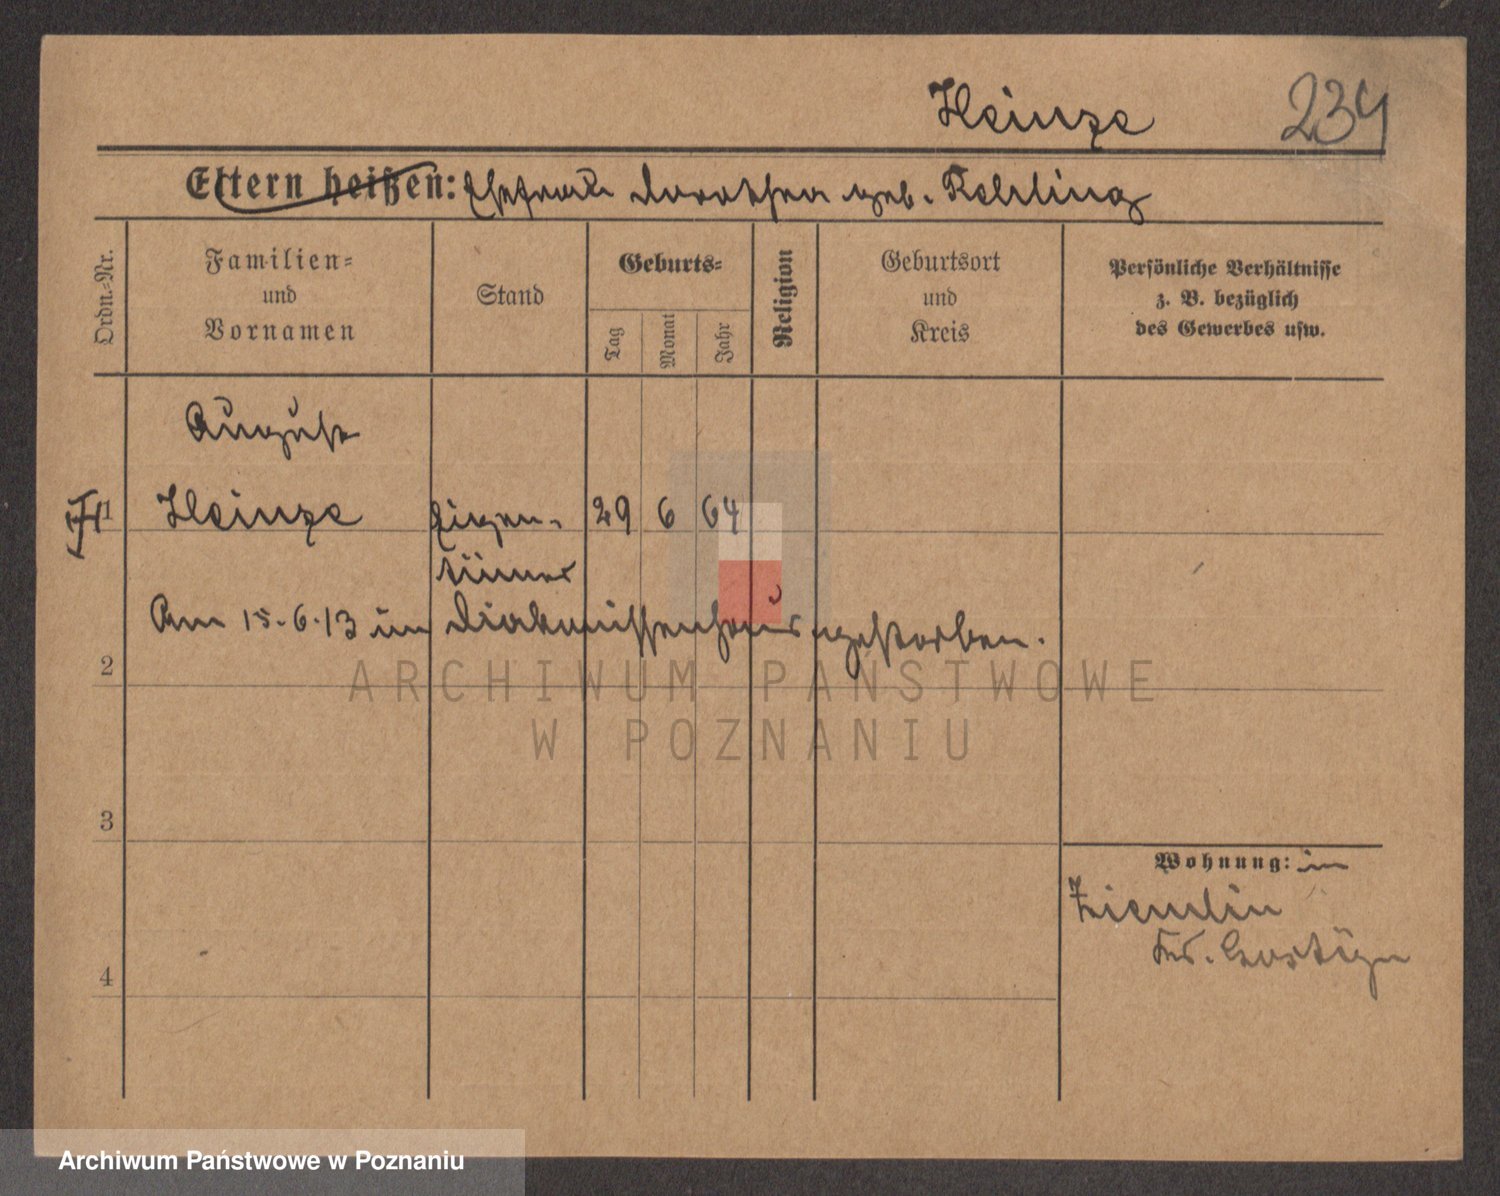 Heinze 234
Eltern heißen: Ehefrau Dorothea geb. Rehling
Ordn.-Nr.
Familien-
und
Vornamen
Stand
Geburts-
Tag
Monat
Jahr
Religion
Geburtsort
und
Kreis
Persönliche Verhältnisse
z. B. bezüglich
des Gewerbes usw.
August
1 Heinze Eigen- 29 6 64
tümer
Am 15.6.13 im Diakonissenhaus gestorben.
2
3
4
Wohnung: in
Ziemlin
Kr. Gostyn
ARCHIWUM PAŃSTWOWE
W POZNANIU
Archiwum Państwowe w Poznaniu